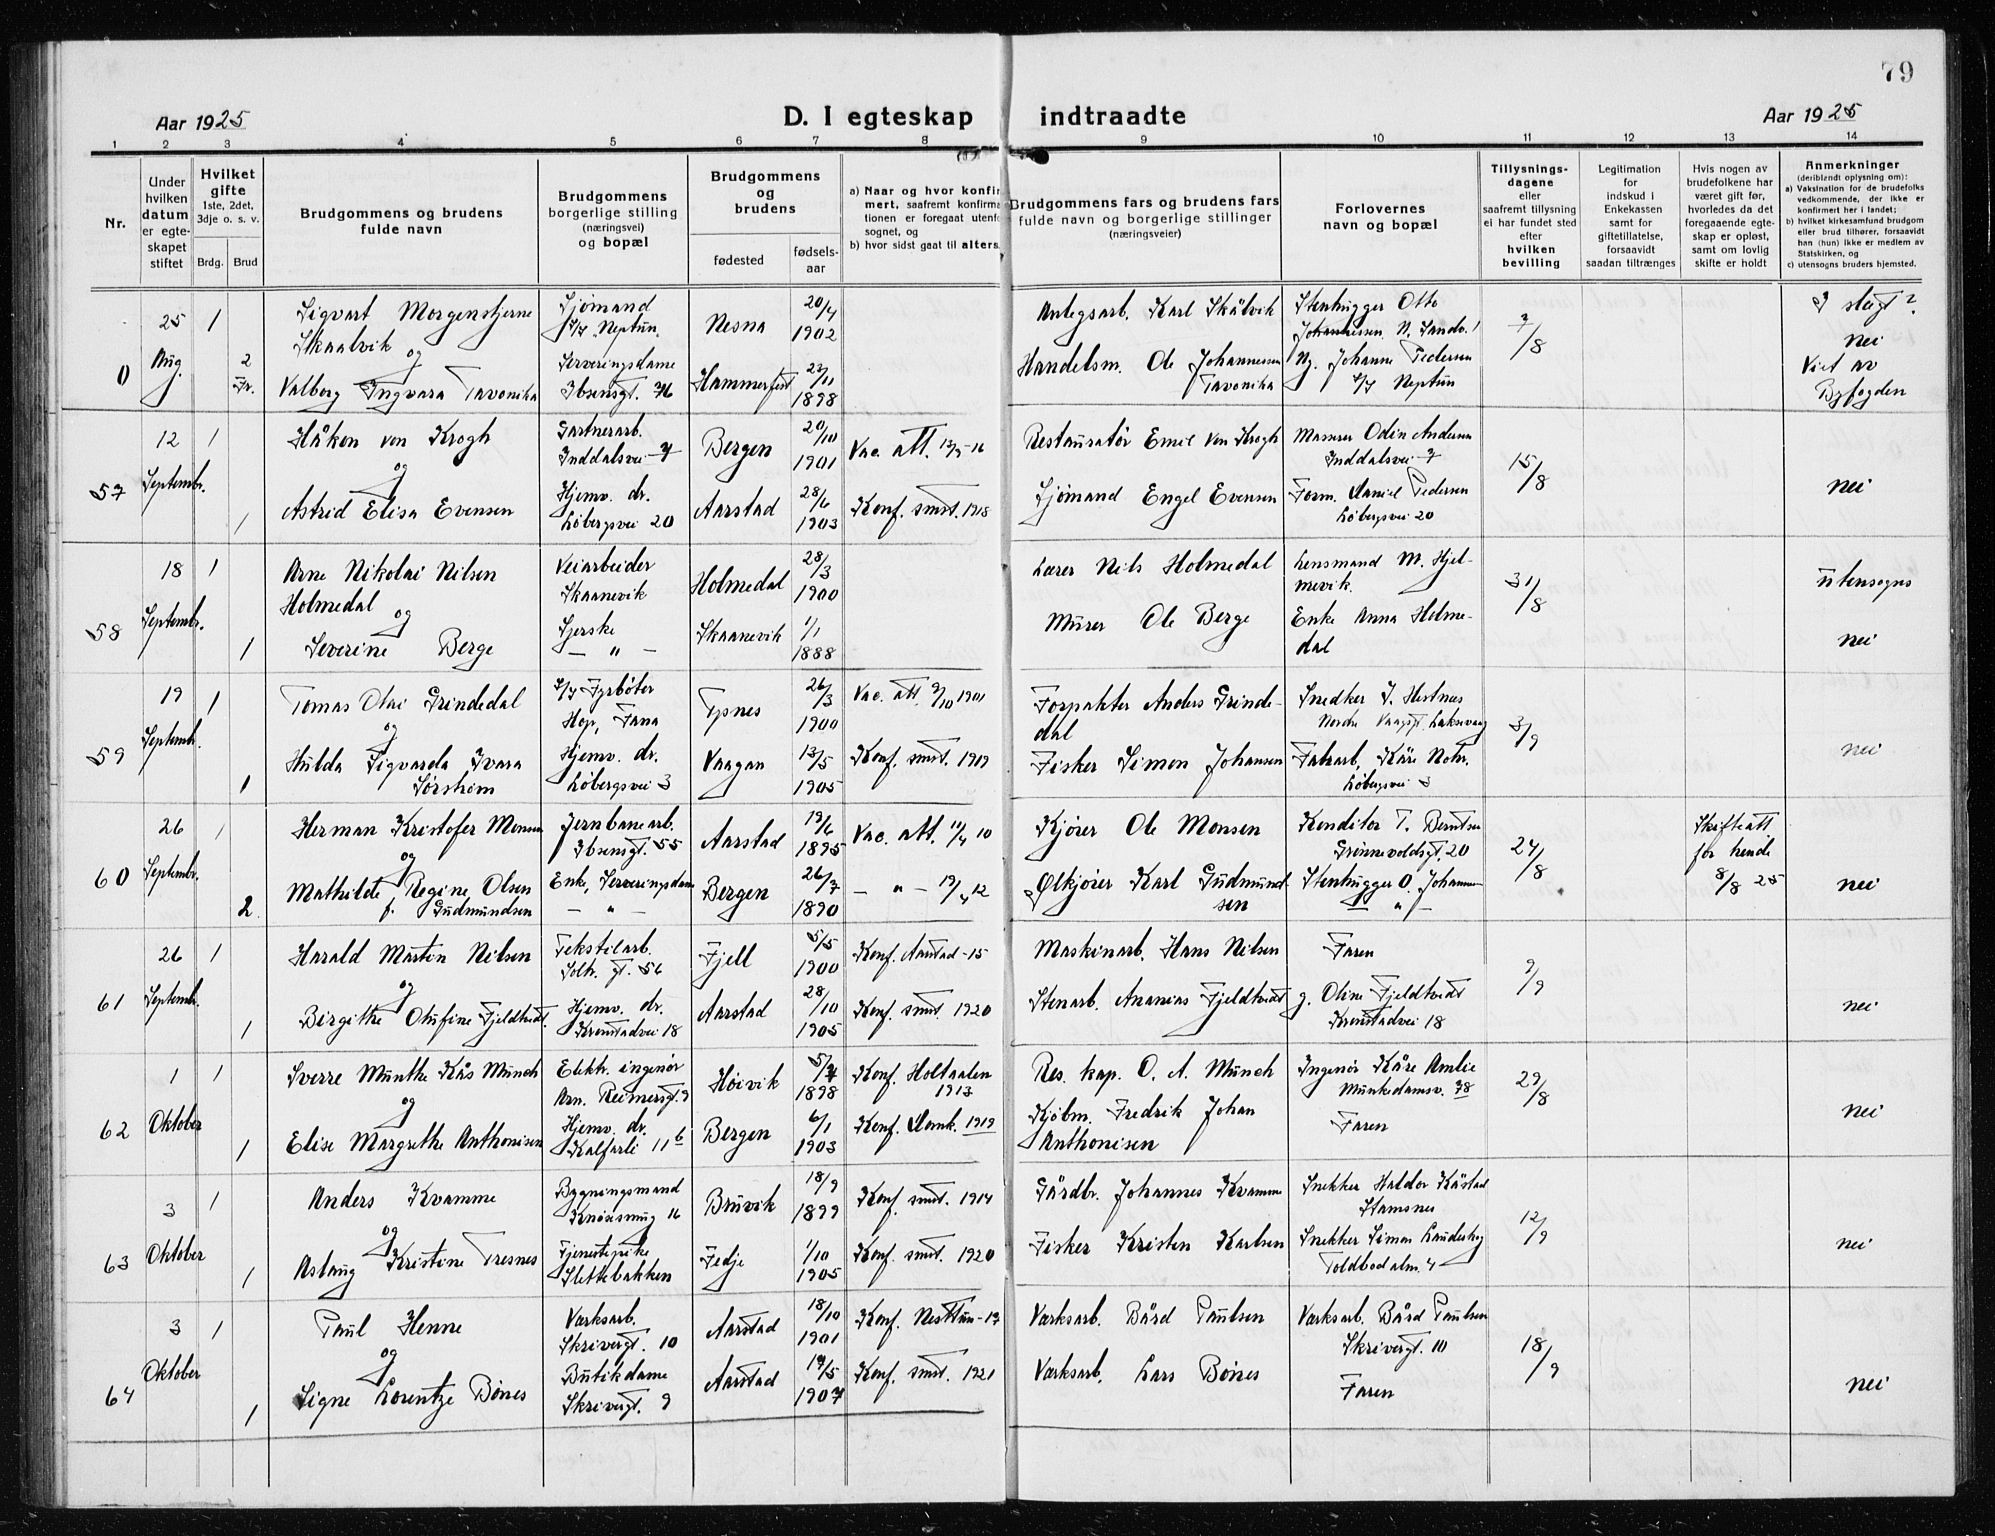 79
Aar 1925
D. I egteskap indtraadte
Aar 1925
1 2 3 4 5 6 7 8 9 10 11 12 13 14
Nr.
Under
hvilken
datum
er egte-
skapet
stiftet
Hvilket
gifte
1ste, 2det,
3dje o. s. v.
Brdg. Brud
Brudgommens og brudens
fulde navn
Brudgommens
borgerlige stilling
(næringsvei)
og bopæl
Brudgommens
og
brudens
fødested
fødsels-
aar
a) Naar og hvor konfir
mert, saafremt konfirma
tionen er foregaat utenf
sognet, og
b) hvor sidst gaat til alters.
Brudgommens fars og brudens fars
fulde navn og borgerlige stillinger
(næringsveier)
Forlovernes
navn og bopæl
Tillysnings-
dagene
eller
saafremt tillysning
ei har fundet sted
efter
hvilken
bevilling
Legitimation
for
indskud i
Enkekassen
samt for
giftetillatelse,
forsaavidt
saadan tiltrænges
Hvis nogen av
brudefolkene har
været gift før,
hvorledes da det
foregaaende egte-
skap er opløst,
samt om lovlig
skifte er holdt
Anmerkninger
(deriblandt oplysning om):
a) Vaksination for de brudefolks
vedkommende, der ikke er
konfirmert her i landet;
b) hvilket kirkesamfund brudgom
eller brud tilhører, forsaavidt
han (hun) ikke er medlem av
Statskirken, og
c) utensogns bruders hjemsted.
0
25
Aug.
1
2
Fr.
Sigvart Morgenstjerne
Skaalvik
og
Valborg Ingvara Tavonika
Sjømand
D/S Neptun
Serveringsdame
Ibsensgt. 76
Nesna
Hammerfest
20/4
1902
27/11
1898
Anlegsarb. Karl Skålvik
Handelsm. Ole Johannessen
Tavonika
Stenhugger Otto
Johannessen N.
Johanne Pedersen
Neptun
7/8
I slegt?
nei
Viet av
Byfogden
57
12
Septembr.
1
1
Håkon von Krogh
og
Astrid Elisa Evensen
Gartnerarb.
Inddalsvei 7
Hjemv. dr.
Løbergsvei 20
Bergen
Aarstad
20/10
1901
28/6
1903
Vac. att. 13/9-16
Konf. smst. 1918
Restauratør Emil von Krogh
Sjømand Engel Evensen
Murer Odin Andersen
Inddalsvei 7
Form. Daniel Pedersen
Løbergsvei 20
15/8
nei
58
18
Septembr.
1
1
Arne Nikolai Nilsen
Holmedal
og
Severine Berge
Veiarbeider
Skaanevik
Sjerske
— " —
Holmedal
Skaanevik
28/3
1900
1/1
1888
Lærer Nils Holmedal
Murer Ole Berge
Lensmand M. Hjel-
mevik.
Enke Anna Holme-
dal
31/8
utensogns
nei
59
19
Septembr.
1
1
Tomas Olai Grindedal
og
Hulda Sigvarda Ivara
Sørshim
D/S Fyrbøter
Hop, Fana
Hjemv. dr.
Løbergsvei 3
Tysnes
Vaagan
26/3
1900
13/5
1905
Vac. att. 9/10 1901
Konf. smst. 1919
Forpakter Anders Grinde-
dal
Fisker Simon Johansen
Snedker J. Hestnes
Nordre Vaagsgt. Laksevaag
Fabarb. Kåre Notr.
Løbergsvei 3
3/9
nei
60
26
Septembr.
1
2
Herman Kristofer Monsen
og
Mathilde Regine Olsen
f. Gudmundsen
Jernbanearb.
Ibsensgt. 55
Enke, Serveringsdam
— " —
Aarstad
Bergen
19/6
1895
26/7
1890
Vac. att. 11/4 10
— " — 19/4 12
Kjører Ole Monsen
Ølkjører Karl Gudmund-
sen
Konditor T. Berntsen
Grønnevoldsgt. 20
Stenhugger O. Johannesen
— " —
24/8
Skifteatt
for hende
8/8 25
nei
61
26
Septembr.
1
1
Harald Martin Nilsen
og
Birgithe Olufine Fjeldtvedt.
Tekstilarb.
Solh. gt. 56
Hjemv. dr.
Kronstadvei 18
Fjell
Aarstad
5/5
1900
28/10
1905
Konf. Aarstad -15
Konf. smst. 1920
Maskinarb. Hans Nilsen
Stenarb. Ananias Fjeldtvedt
Faren
g. Oline Fjeldtvedt
Kronstadvei 18
9/9
nei
62
1
Oktober
1
1
Sverre Munthe Kås Munch
og
Elise Margrethe Anthonisen
Elektr. ingenør
Arn. Reimersgt. 9
Hjemv. dr.
Kalfarli 11 b
Høivik
Bergen
5/7
1898
6/1
1903
Konf. Holtaalen
1913
Konf. Domk. 1919
Res. kap. O. A. Munch
Kjøbm. Fredrik Johan
Anthonisen
Ingenør Kåre Amlie
Munkedamsv. 78
Faren
29/8
nei
63
3
Oktober
1
1
Anders Kvamme
og
Aslaug Kristine Tresnes
Bygningsmand
Knøsesmug 16
Tjenestepike
Slettebakken
Bruvik
Fedje
18/9
1899
1/10
1905
Konf. smst. 1914
Konf. smst. 1920
Gårdbr. Johannes Kvamme
Fisker Kristen Karlsen
Snekker Haldor Kåstad
Stamsnes
Snekker Simon
Toldbodalm. 4
12/9
nei
64
3
Oktober
1
1
Paul Henne
og
Signe Lorentze Bønes
Værksarb.
Skrivergt. 10
Butikdame
Skrivergt. 9
Aarstad
Aarstad
18/10
1901
19/5
1907
Konf. Nesttun -17
Konf. smst. 1921
Værksarb. Bård Paulsen
Værksarb. Lars Bønes
Værksarb. Bård Paulsen
Skrivergt. 10
Faren
18/9
nei